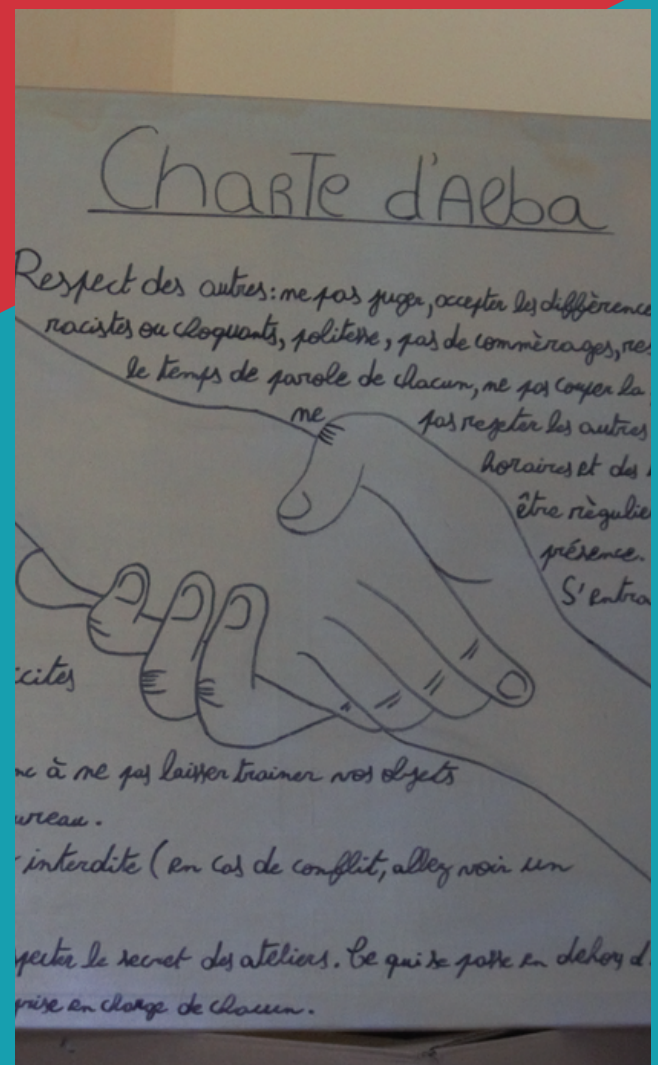 Charte d'Alba
Respect des autres: ne pas juger, accepter les différence
racistes ou choquants, politesse, pas de commèrages, res
le temps de parole de chacun, ne pas couper la
ne pas rejeter les autres
horaires et des
être règulie
présence.
S'entra
cites
à ne pas laisser trainer vos objets
ureau.
interdite (en cas de conflit, allez voir un
pecter le secret des atéliers. Ce qui se passe en dehors d
prise en charge de chacun.